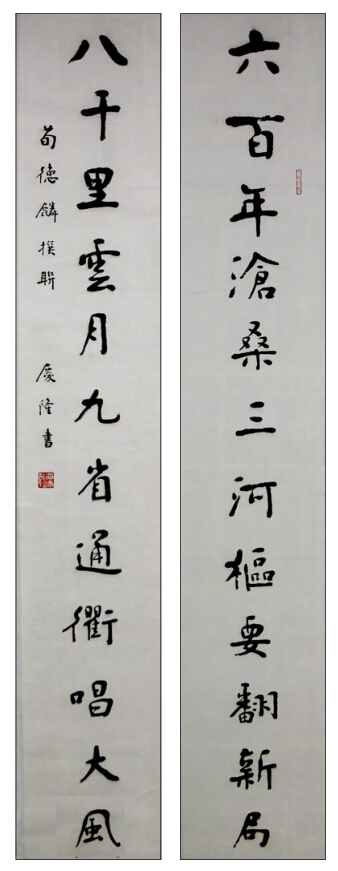 六百年滄桑三河樞要翻新局
八千里雲月九省通衢唱大風
荀德麟撰聯 慶隆書